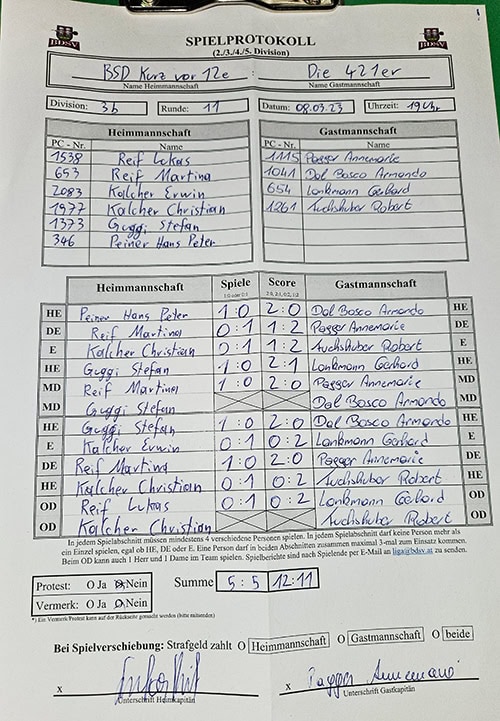 BDSV SPIELPROTOKOLL BDSV
(2./3./4./5. Division)
BSD Kurz vor 12e Die 421er
Name Heimmannschaft Name Gastmannschaft
Division: 3b Runde: 11 Datum: 08.03.23 Uhrzeit: 19 Uhr
Heimmannschaft Gastmannschaft
PC - Nr. Name PC - Nr. Name
1538 Reif Lukas 1115 Pagger Annemarie
653 Reif Martina 1041 Dal Bosco Armando
2083 Kalcher Erwin 654 Lankmann Gerhard
1977 Kalcher Christian 1261 Fuchshuber Robert
1373 Guggi Stefan
346 Peiner Hans Peter
Heimmannschaft Spiele Score Gastmannschaft
1:0 oder 0:1 2:0, 2:1, 0:2, 1:2
HE Peiner Hans Peter 1:0 2:0 Dal Bosco Armando HE
DE Reif Martina 0:1 1:2 Pagger Annemarie DE
E Kalcher Christian 0:1 1:2 Fuchshuber Robert E
HE Guggi Stefan 1:0 2:1 Lankmann Gerhard HE
MD Reif Martina 1:0 2:0 Pagger Annemarie MD
MD Guggi Stefan Dal Bosco Armando MD
HE Guggi Stefan 1:0 2:0 Dal Bosco Armando HE
E Kalcher Erwin 0:1 0:2 Lankmann Gerhard E
DE Reif Martina 1:0 2:0 Pagger Annemarie DE
HE Kalcher Christian 0:1 0:2 Fuchshuber Robert HE
OD Reif Lukas 0:1 0:2 Lankmann Gerhard OD
OD Kalcher Christian Fuchshuber Robert OD
In jedem Spielabschnitt müssen mindestens 4 verschiedene Personen spielen. In jedem Spielabschnitt darf keine Person mehr als
ein Einzel spielen, egal ob HE, DE oder E. Eine Person darf in beiden Abschnitten zusammen maximal 3-mal zum Einsatz kommen.
Beim OD kann auch 1 Herr und 1 Dame im Team spielen. Spielberichte sind nach Spielende per E-Mail an liga@bdsv.at zu senden.
Protest: O Ja O Nein Summe 5:5 12:11
Vermerk: O Ja O Nein
*) Ein Vermerk/Protest kann auf der Rückseite gemacht werden (bitte
Bei Spielverschiebung: Strafgeld zahlt O Heimmannschaft O Gastmannschaft O beide
x x Pagger Annemarie
Unterschrift Heimkapitän Unterschrift Gastkapitän